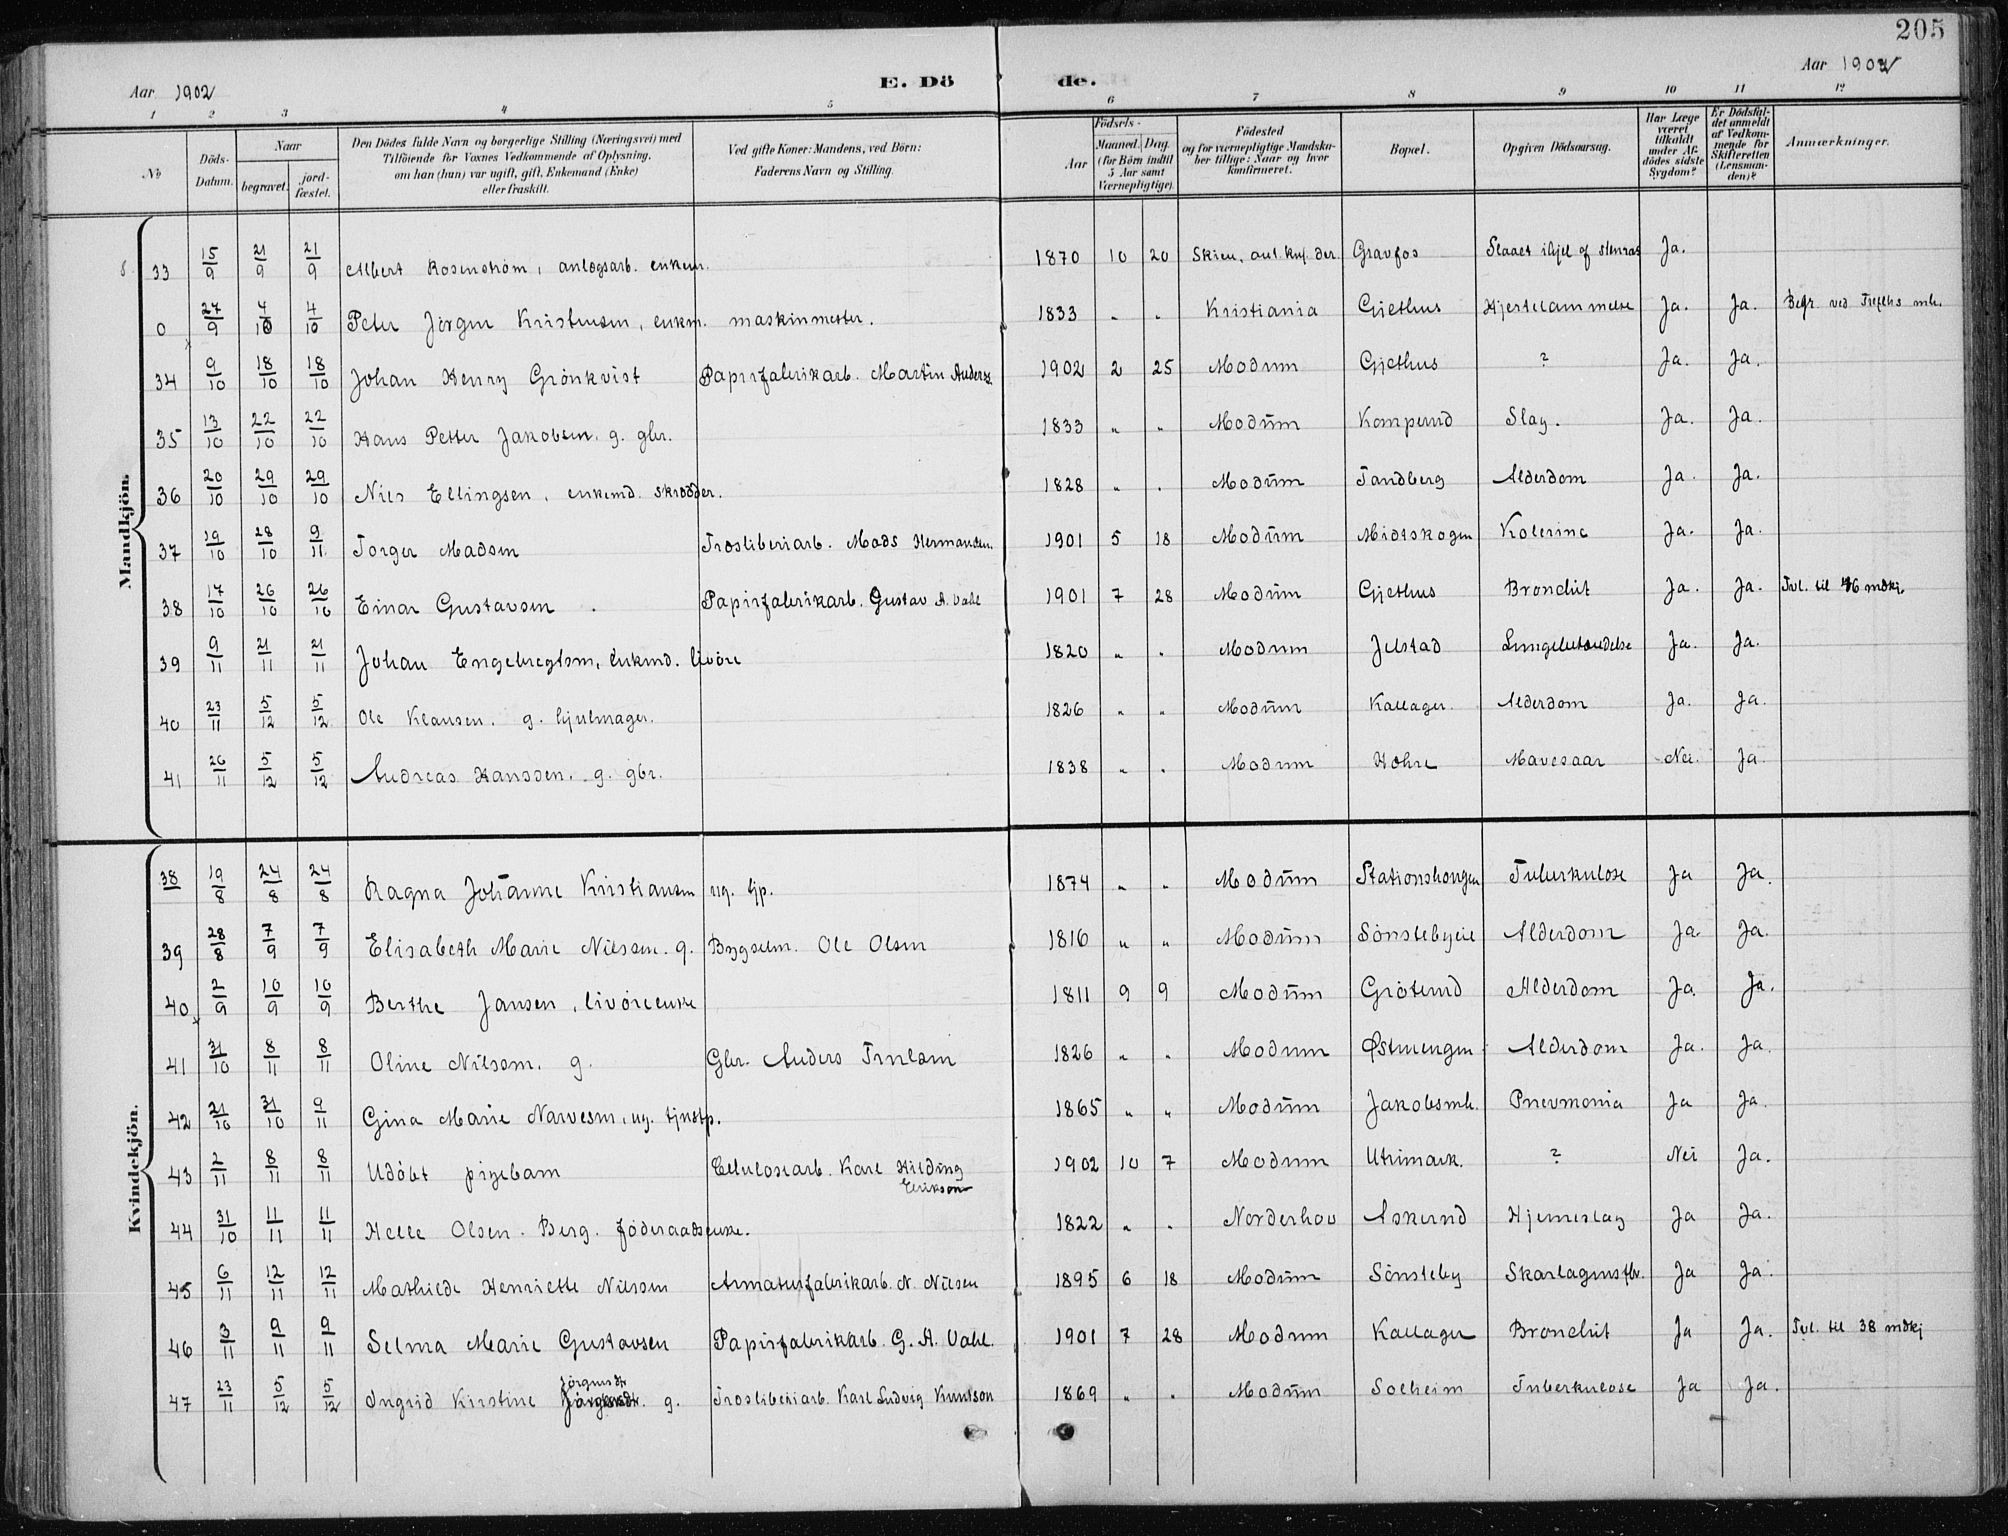 205
Aar 1902
E. Dö de.
Aar 1902
1 2 3 4 5 6 7 8 9 10 11 12
No
Döds-Datum.
Naar
begravet.
jord-fæstet.
Den Dödes fulde Navn og borgerlige Stilling (Næringsvei) med Tilföiende for Voxnes Vedkommende af Oplysning, om han (hun) var ugift, gift, Enkemand (Enke) eller fraskilt.
Ved gifte Koner: Mandens, ved Börn: Faderens Navn og Stilling.
Födsels-
Aar
Maaned. Dag.
(for Börn indtil 5 Aar samt Værnepligtige).
Födested og for værnepligtige Mandskaber tillige: Naar og hvor konfirmeret.
Bopæl.
Opgiven Dödsaarsag.
Har Læge været tilkaldt under Afdödes sidste Sygdom?
Er Dödsfaldet anmeldt af Vedkommende for Skifteretten (Lensmanden)?
Anmærkninger.
Mandkjön.
33 15/9 21/9 21/9 Albert Rosenström, anlægsarb. enkem. 1870 10 20 Skien, ant. knf. der. Gravfos Slaaet ihjel af stenras Ja.
0 27/9 4/10 4/10 Peter Jörgen Kristensen, enkm. maskinmester. 1833 " " Kristiania Gjethus Hjertelammelse Ja. Ja. Begr. ved mh.
34 9/10 18/10 18/10 Johan Henry Grönkvist Papirfabrikarb. Martin Anders. 1902 2 25 Modum Gjethus ? Ja. Ja.
35 13/10 22/10 22/10 Hans Petter Jakobsen. g. gbr. 1833 " " Modum Komperud Slag. Ja. Ja.
36 20/10 29/10 29/10 Nils Ellingsen, enkemd. skrædder. 1828 " " Modum Tandberg Alderdom Ja. Ja.
37 19/10 28/10 9/11 Torger Madsen Træsliberiarb. Mads Hermansen. 1901 5 18 Modum Midtskogen Kolerine Ja. Ja.
38 17/10 26/10 26/10 Einar Gustavsen. Papirfabrikarb. Gustav A. Vahl 1901 7 28 Modum Gjethus Bronchit Ja. Ja. Tvl. til 46 kj.
39 9/11 21/11 21/11 Johan Engebregtsen, enkmd. livöre 1820 " " Modum Jelstad Lungebetændelse Ja. Ja.
40 23/11 5/12 5/12 Ole Klausen. g. hjulmager. 1826 " " Modum Kallager. Alderdom Ja. Ja.
41 26/11 5/12 5/12 Andreas Hanssen. g. gbr. 1838 " " Modum Hohre Mavesaar Nei. Ja.
Kvindekjön.
38 19/8 24/8 24/8 Ragna Johanne Kristiansen ug. tjp. 1874 " " Modum Stationshougen Tuberkulose Ja Ja.
39 28/8 7/9 7/9 Elisabeth Marie Nilssen. g. Bygselm. Ole Olsen 1816 " " Modum Sönstebyeie Alderdom Ja. Ja.
40 2/9 10/9 10/9 Berthe Jansen, livöreenke 1811 9 9 Modum Gröterud Alderdom Ja. Ja.
41 31/10 8/11 8/11 Oline Nilsen. g. Gbr. Anders Trulsen 1826 " " Modum Østmengen Alderdom Ja. Ja.
42 21/10 31/10 9/11 Gina Marie Narvesen, ug. tjnstp. 1865 " " Modum Jakobsmh. Pnevmonia Ja Ja.
43 2/11 8/11 8/11 Udöbt pigebarn Cellulosearb. Karl Hilding Erikson 1902 10 7 Modum Utrimark. ? Nei Ja.
44 31/10 11/11 11/11 Helle Olsen. Berg. föderaadsenke. 1822 " " Norderhov Askerud Hjerneslag Ja Ja.
45 6/11 12/11 12/11 Mathilde Henriette Nilssen Armaturfabrikarb. N. Nilsen 1895 6 18 Modum Sönsteby Skarlagensfbr. Ja Ja.
46 3/11 9/11 9/11 Selma Marie Gustavsen Papirfabrikarb. G. A. Vahl. 1901 7 28 Modum Kallager Bronchit Ja Ja. Tvl. til 38 mdkj
47 23/11 5/12 5/12 Ingrid Kirstine Jörgensdtr. g. Træsliberiarb. Karl Ludvig Knutson 1869 " " Modum Solheim Tuberkulose Ja Ja.